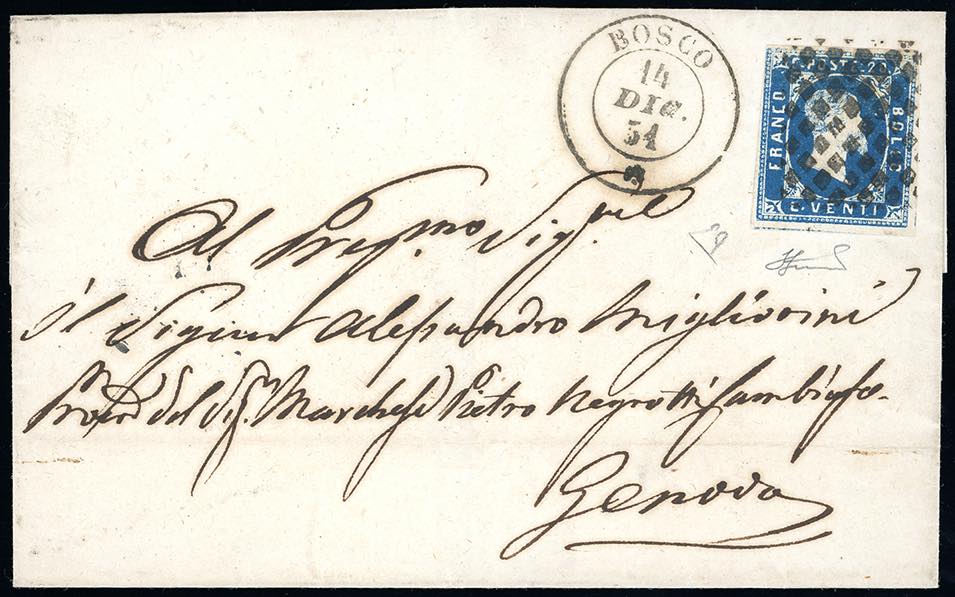 BOSCO
14
DIC.
51
C. POSTE 20
FRANCO
BOLLO
C. VENTI
Al Preg.mo Sig.
il Signor Alessandro Migliorini
del Sig.r Marchese Pietro Negrotti Cambiaso.
Genova